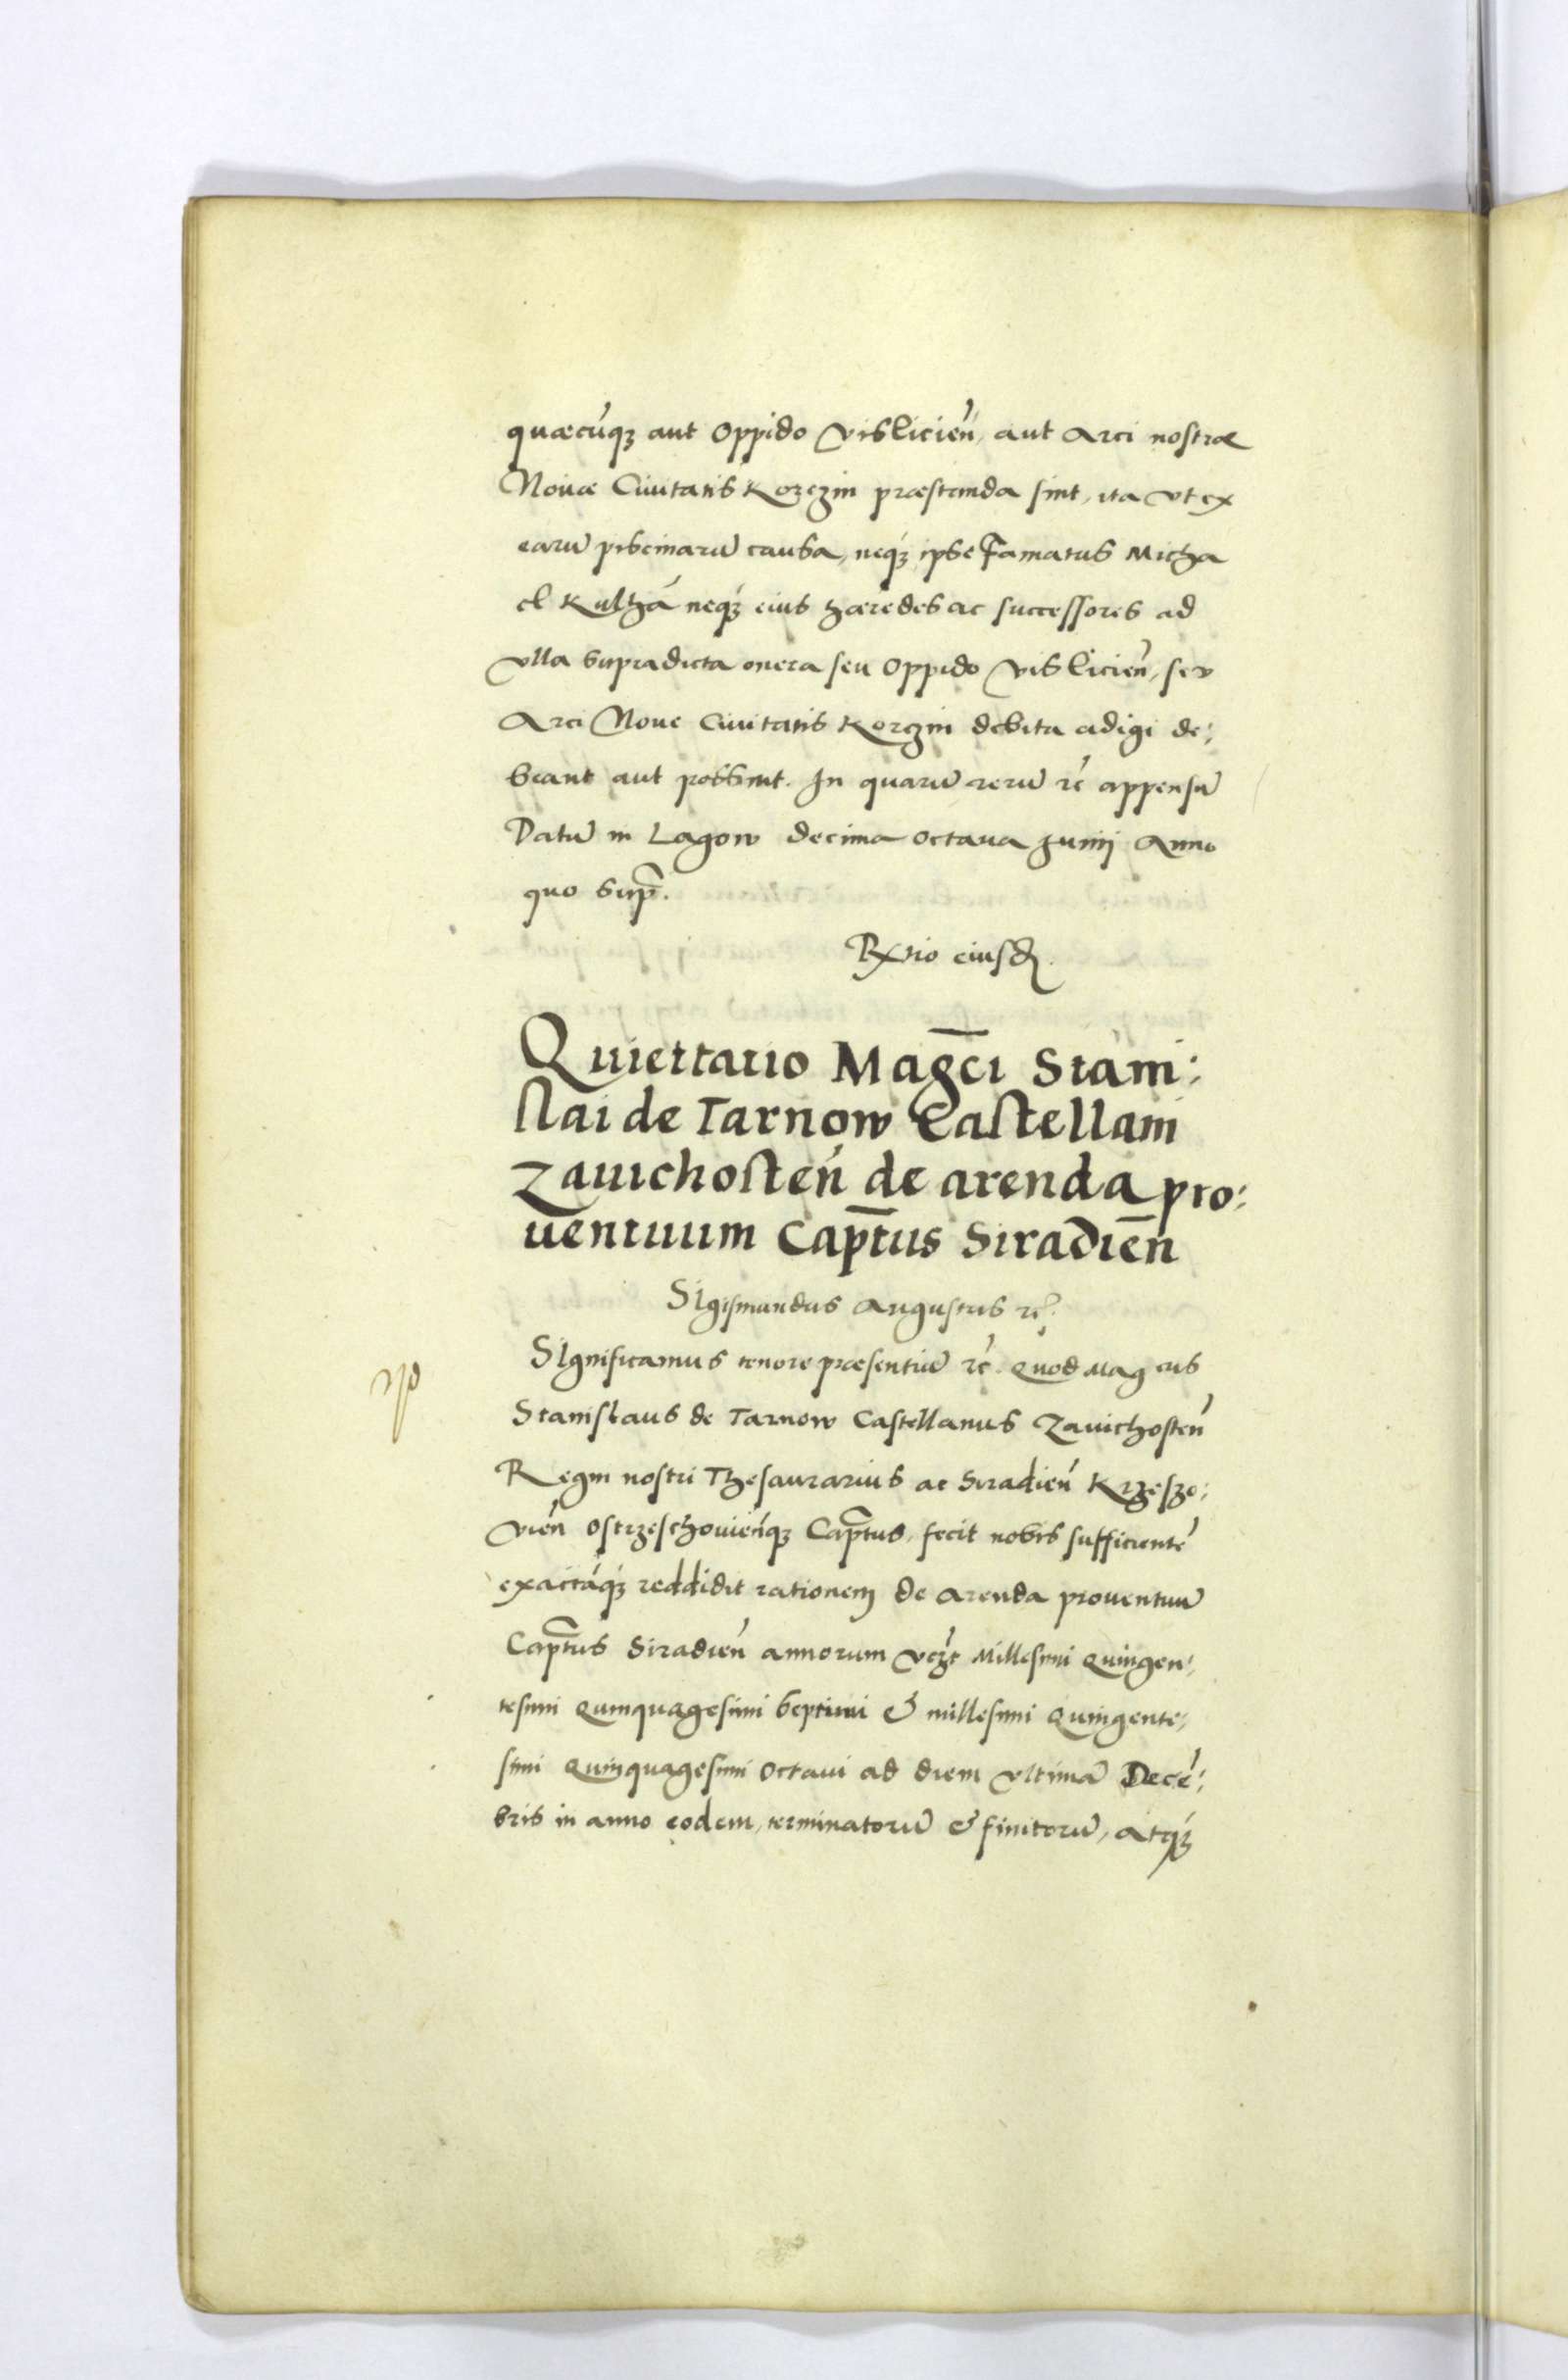 quæcúq; aut Oppido Vislicień, aut Arci nostræ
Nouæ Ciuitatis Korczin præstanda sint, ita vt ex
earū piscinarū causa, neq; ipse Famatus Micha
el Kulhá neq; eius hæredes ac successores ad
vlla supradicta onera seu Oppido Vislicień, seu
Arci Noue Ciuitatis Korczin debita adigi de:
beant aut possint. In quarū rerū rc̄ appensū
Datū in Lagow decima octaua Junij Anno
quo sup̄.
Rx̄tio eiusd̄.
Quiettatio Magc̄i Stani:
slai de Tarnow Castellani
Zauichosteń de arenda pro:
uentuum Cap̄tus Siradień
Sigismundus Augustus rc̄.
Significamus tenore præsentiū rc̄. Quod Magcus
Stanislaus de Tarnow Castellanus Zauichosteń
Regni nostri Thesaurarius ac Siradień Krzeszo:
vień Ostrzeschovieńq; Cap̄tus, fecit nobis sufficientē
exactáq; reddidit rationem de Arenda prouentuū
Cap̄tus Siradień annorum vczt Millesimi Quingen:
tesimi Quinquagesimi septimi & millesimi Quingente:
simi Quinquagesimi Octaui ad diem vltimā Decē:
bris in anno eodem, terminatorū & finitorū, atq;